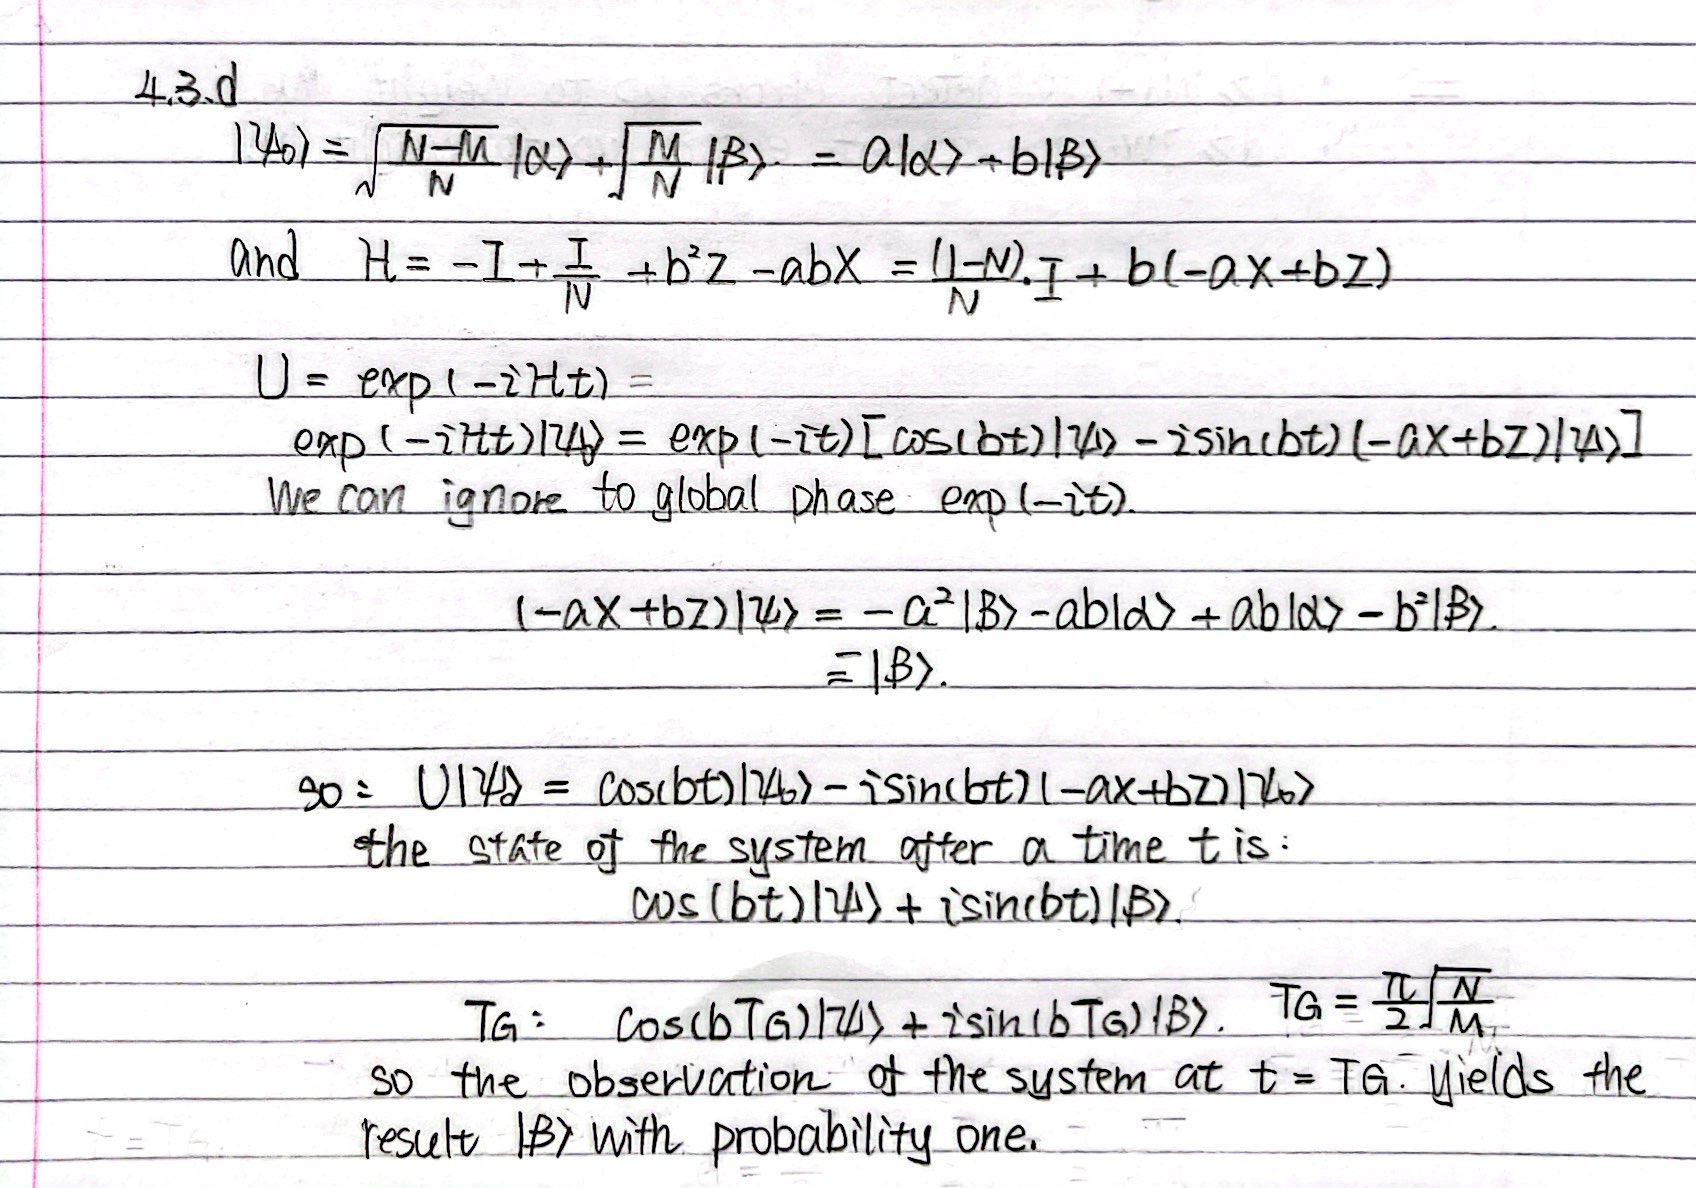 4.3.d
|ψ₀⟩ = √((N-M)/N) |α⟩ + √(M/N) |β⟩ = a|α⟩ + b|β⟩
and H = -I + I/N + b²Z - abX = (1-N)/N · I + b(-aX+bZ)
U = exp(-iHt) =
exp(-iHt)|ψ₀⟩ = exp(-it)[cos(bt)|ψ⟩ - isin(bt)(-aX+bZ)|ψ⟩]
We can ignore to global phase exp(-it).
(-aX+bZ)|ψ⟩ = -a²|β⟩ - ab|α⟩ + ab|α⟩ - b²|β⟩.
= -|β⟩.
so: U|ψ₀⟩ = cos(bt)|ψ₀⟩ - isin(bt)(-aX+bZ)|ψ₀⟩
the state of the system after a time t is:
cos(bt)|ψ⟩ + isin(bt)|β⟩.
TG: cos(bTG)|ψ⟩ + isin(bTG)|β⟩. TG = π/2 √(N/M)
so the observation of the system at t = TG. yields the
result |β⟩ with probability one.